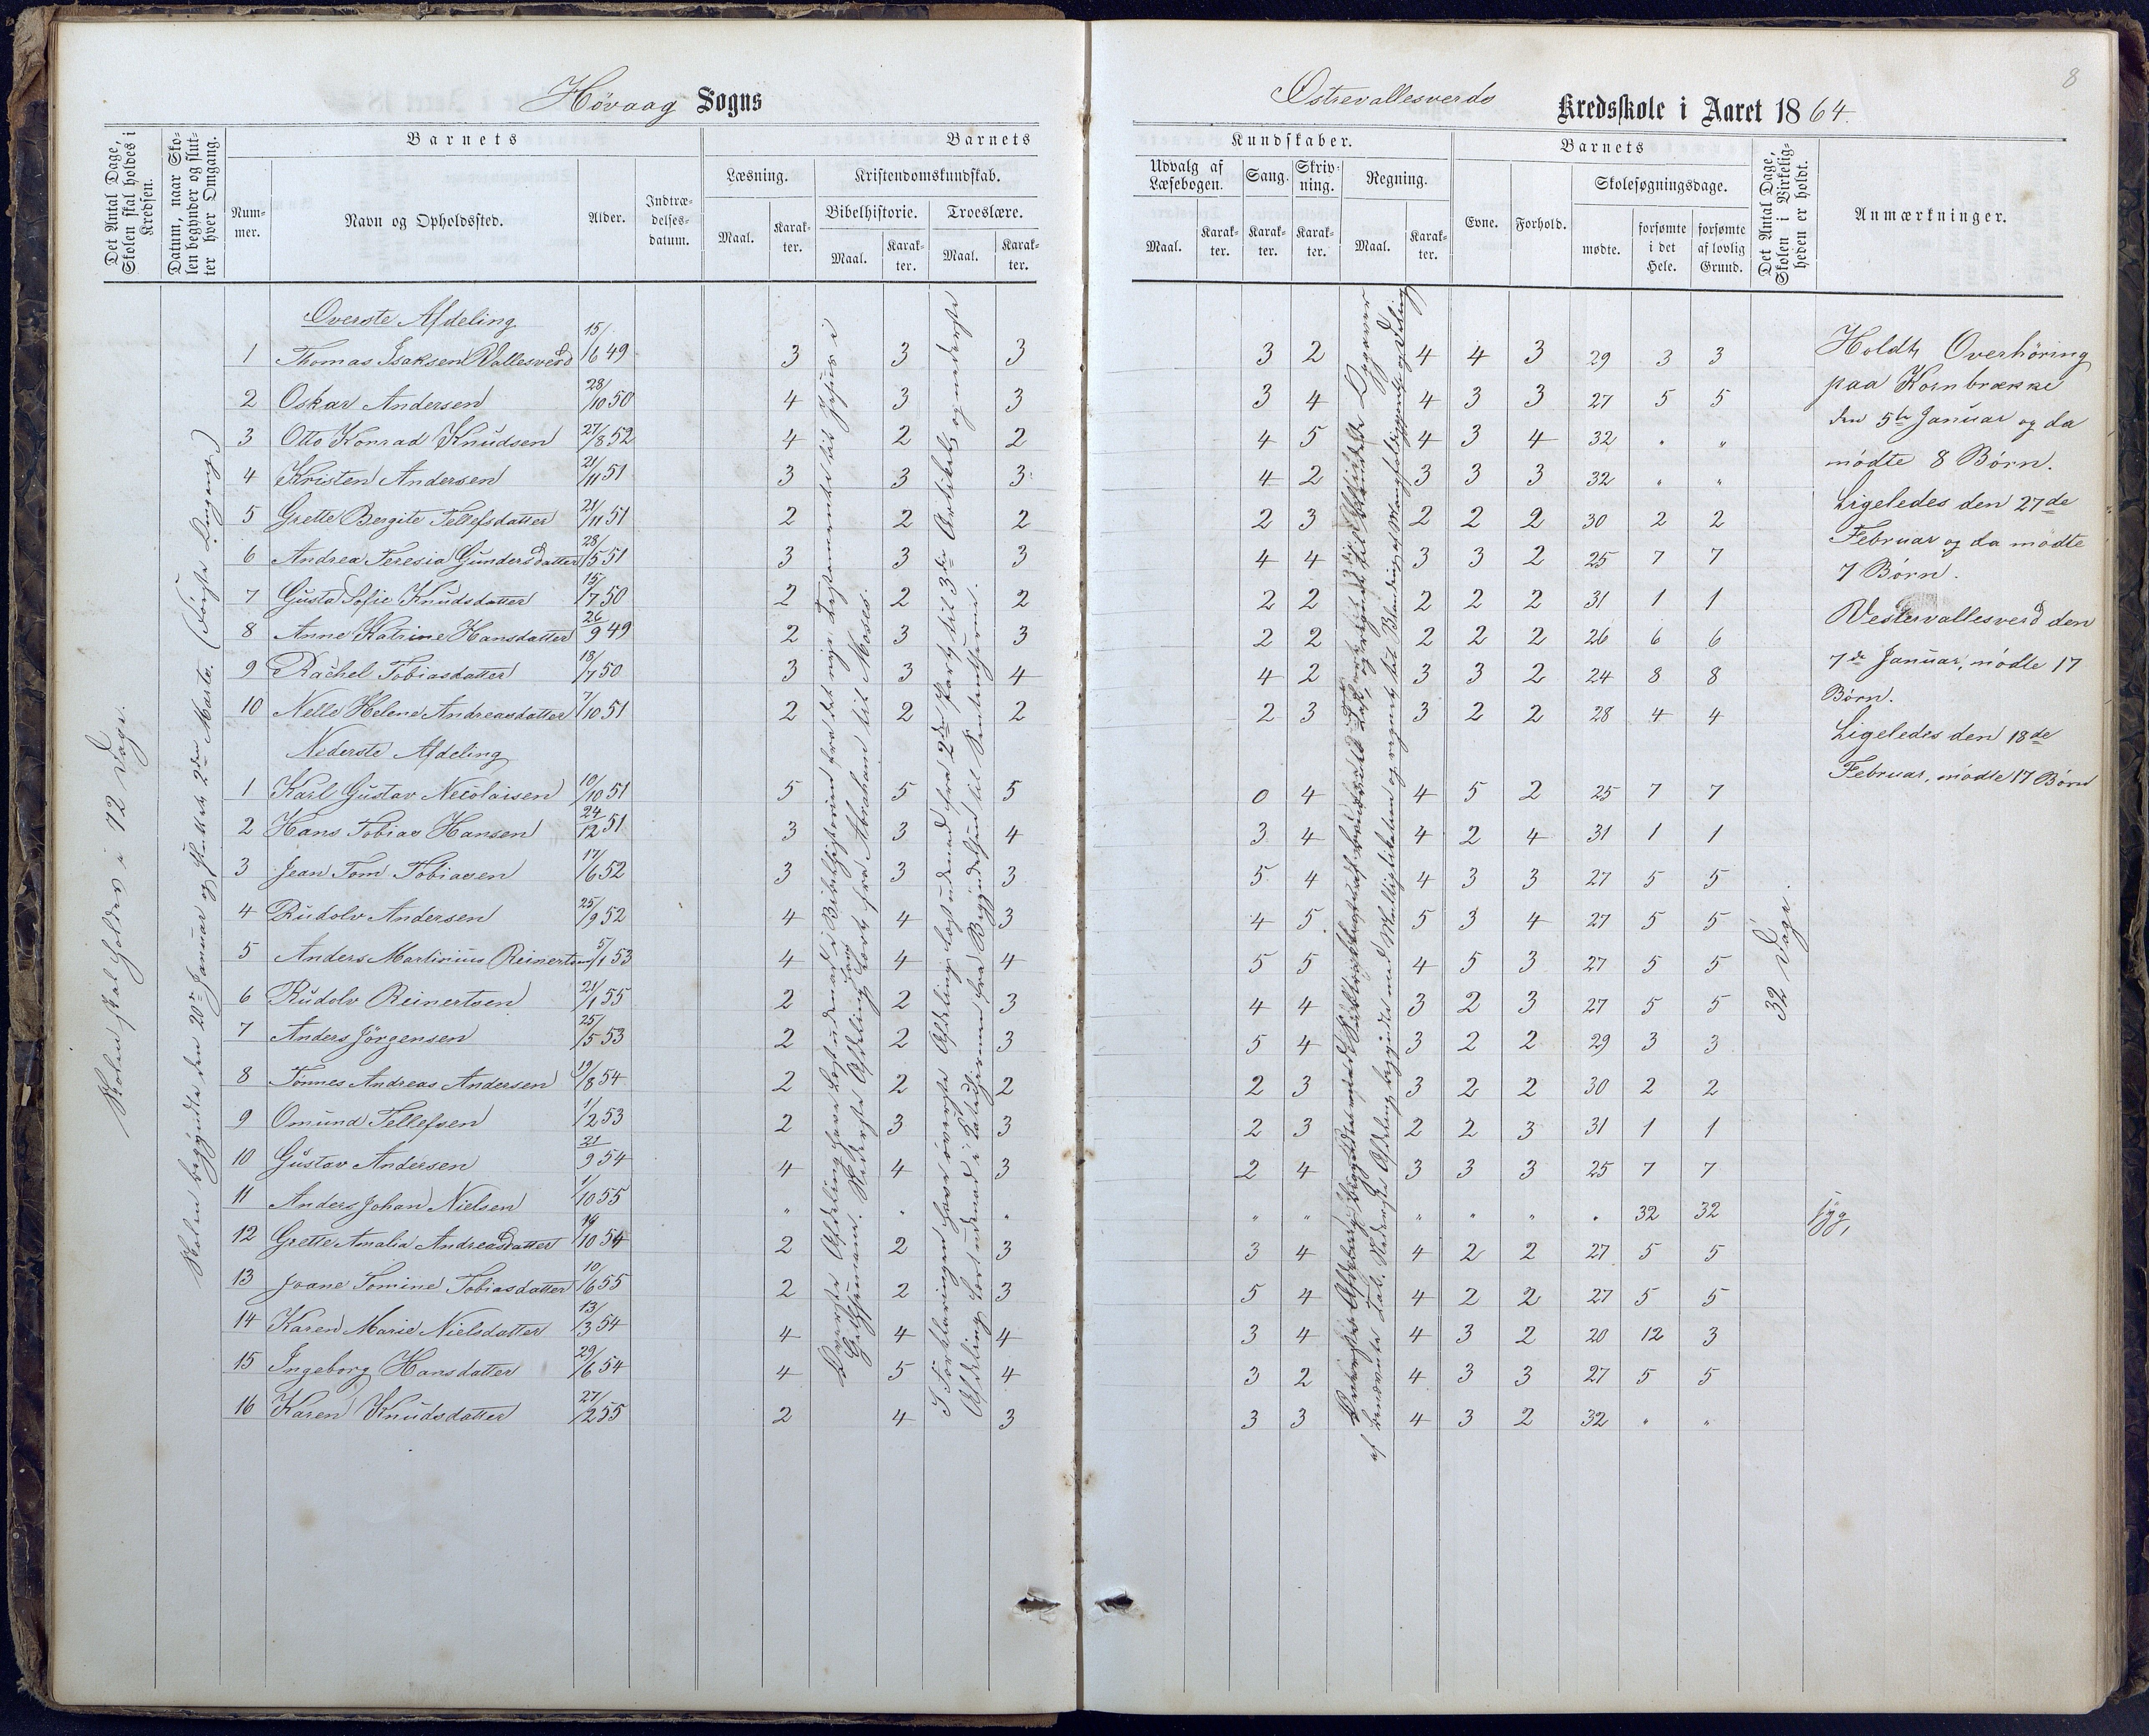 8
Høvaag Sogns
Østrevallesverds Kredsskole i Aaret 1864.
Det Antal Dage, Skolen skal holdes i Kredsen.
Datum, naar Skolen begynder og slutter hver Omgang.
Barnets
Nummer.
Navn og Opholdssted.
Alder.
Indtrædelsesdatum.
Barnets
Læsning.
Maal.
Karakter.
Kristendomskundskab.
Bibelhistorie.
Maal.
Karakter.
Troeslære.
Maal.
Karakter.
Kundskaber.
Udvalg af Læsebogen.
Maal.
Karakter.
Sang.
Karakter.
Skrivning.
Karakter.
Regning.
Maal.
Karakter.
Barnets
Evne.
Forhold.
Skolesøgningsdage.
mødte.
forsømte i det Hele.
forsømte af lovlig Grund.
Det Antal Dage, Skolen i Virkeligheden er holdt.
Anmærkninger.
Skolen skal holdes i 72 Dage.
Skolen begyndte den 20de Januar og sluttede 2den Marts. (Første Omgang)
Overste Afdeling
1 Thomas Isaksen Vallesverd 15/6 49 3 3 3 3 2 4 4 3 29 3 3
2 Oskar Andersen 28/10 50 4 3 3 3 4 4 3 3 27 5 5
3 Otto Konrad Knudsen 27/8 52 4 2 2 4 5 4 3 4 32 " "
4 Kristen Andersen 21/11 51 3 3 3 4 2 3 3 3 32 " "
5 Grette Bergite Tellefsdatter 21/11 51 2 2 2 2 3 2 2 2 30 2 2
6 Andrea Teresia Gundersdatter 28/5 51 3 3 3 4 4 3 3 2 25 7 7
7 Gusta Sofie Knudsdatter 15/7 50 2 2 2 2 2 2 2 2 31 1 1
8 Anne Katrine Hansdatter 26/9 49 2 3 3 2 2 2 2 2 26 6 6
9 Rachel Tobiasdatter 18/7 50 3 3 4 4 2 3 3 2 24 8 8
10 Nelle Helene Andreasdatter 7/10 51 2 2 2 2 3 3 2 2 28 4 4
Nederste Afdeling
1 Karl Gustav Necolaisen 10/10 51 5 5 5 0 4 4 5 2 25 7 7
2 Hans Tobias Hansen 24/12 51 3 3 4 3 4 4 2 4 31 1 1
3 Jean Tom Tobiasen 17/6 52 3 3 3 5 4 4 3 3 27 5 5
4 Rudolv Andersen 25/9 52 4 4 3 4 5 5 3 4 27 5 5
5 Anders Martinius Reinertsen 5/1 53 4 4 4 5 5 4 5 3 27 5 5
6 Rudolv Reinertsen 21/1 55 2 2 3 4 4 3 2 3 27 5 5
7 Anders Jörgensen 25/5 53 2 2 3 5 4 3 2 2 29 3 3
8 Tönnes Andreas Andersen 19/8 54 2 2 2 2 3 3 2 2 30 2 2
9 Omund Tellefsen 1/2 53 2 3 3 2 3 2 2 3 31 1 1
10 Gustav Andersen 21/9 54 4 4 3 2 4 3 3 3 25 7 7
11 Anders Johan Nielsen 1/10 55 " " " " " " " " " 32 32 syg,
12 Grette Amalia Andreasdatter 19/10 54 2 2 3 3 4 4 2 2 27 5 5
13 Joane Tomine Tobiasdatter 10/6 55 2 2 3 5 4 4 2 2 27 5 5
14 Karen Marie Nielsdatter 13/3 54 4 4 4 3 4 4 3 2 20 12 3
15 Ingeborg Hansdatter 29/6 54 4 5 4 3 2 4 3 3 27 5 5
16 Karen Knudsdatter 27/2 55 2 4 3 3 3 4 3 2 32 " "
Overste Afdeling have læst udenad i Bibelhistorien fra det nye Testamente til Jesus i
Gethsemane. Nederste Afdeling har lært fra Abraham til Moses.
I Forklaringen have överste Afdeling læst udenad fra 2den Part til 3die Artikel, og nederste
Afdeling lært udenad i Katechismen fra Begyndelsen til Sakramenterne.
32 Dage.
Holdt Overhöring
paa Kornbrække
den 5te Januar og da
mödte 8 Börn.
Ligeledes den 27de
Februar og da mödte
7 Börn.
Vestervallesverd den
7de Januar, mödte 17
Börn.
Ligeledes den 18de
Februar, mödte 17 Börn